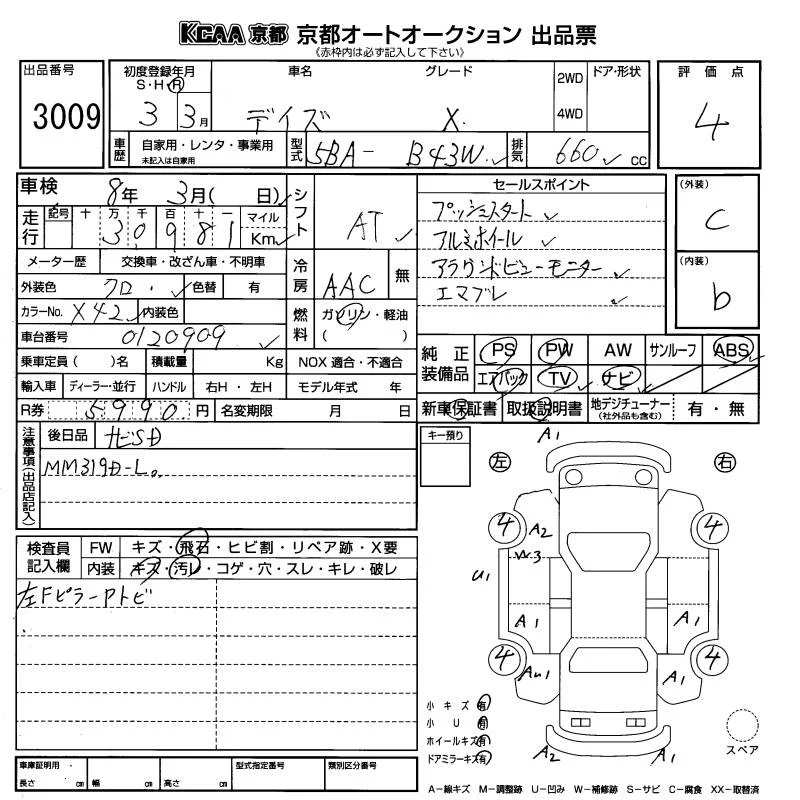 KCAA 京都 京都オートオークション 出品票
《赤枠内は必ず記入して下さい》
出品番号
3009
初度登録年月
S・H・R
3 3月
車名
デイズ
グレード
X
2WD
4WD
ドア・形状
評価点
4
車歴
自家用・レンタ・事業用
未記入は自家用
型式
5BA- B43W
排気
660 cc
車検
8年 3月( 日)
シフト
AT
走行
記号 十 万 千 百 十 一
30981
マイル
Km
メーター歴
交換車・改ざん車・不明車
冷房
AAC
無
外装色
クロ
色替
有
カラーNo.
X42
内装色
燃料
ガソリン・軽油
( )
車台番号
0120909
乗車定員 ( )名
積載量
Kg
NOX 適合・不適合
輸入車
ディーラー・並行
ハンドル
右H・左H
モデル年式 年
R券
5990円
名変期限 月 日
セールスポイント
プッシュスタート
アルミホイール
アラウンドビューモニター
エマブレ
(外装)
C
(内装)
b
純正装備品
PS
PW
AW
サンルーフ
ABS
エアバック
TV
ナビ
新車保証書
取扱説明書
地デジチューナー
(社外品も含む)
有・無
注意事項(出品店記入)
後日品
ナビSD
MM319D-L。
キー預り
検査員記入欄
FW
キズ・飛石・ヒビ割・リペア跡・X要
内装
キズ・汚レ・コゲ・穴・スレ・キレ・破レ
左FピラーPトビ
A1
左
右
4
A2
W3
4
U1
A1
A1
4
AU1
A1
4
A2
A1
小キズ 有
小U 有
ホイールキズ 有
ドアミラーキズ 有
スペア
車庫証明用・
長さ cm
幅 cm
高さ cm
型式指定番号
類別区分番号
A-線キズ M-調整跡 U-凹み W-補修跡 S-サビ C-腐食 XX-取替済